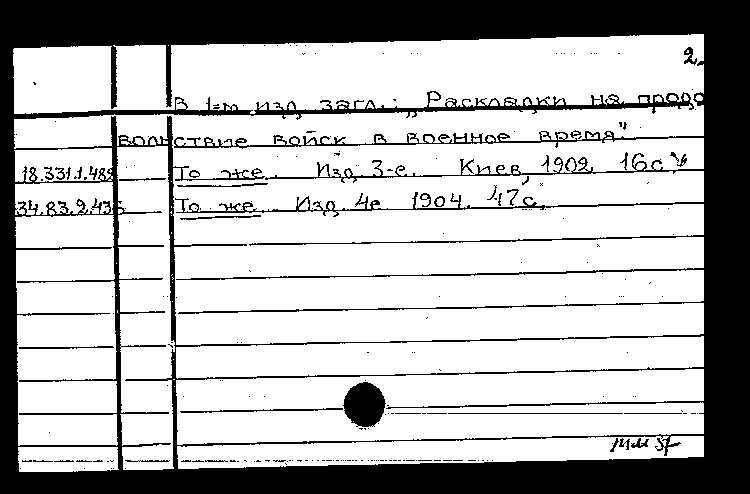 2.
В 1-м изд. загл.: „Раскладки на продо
вольствие войск в военное время."
18.331.1.489 То же. Изд. 3-е. Киев, 1902. 16с.
34.83.2.436 То же. Изд. 4е 1904. 47с.